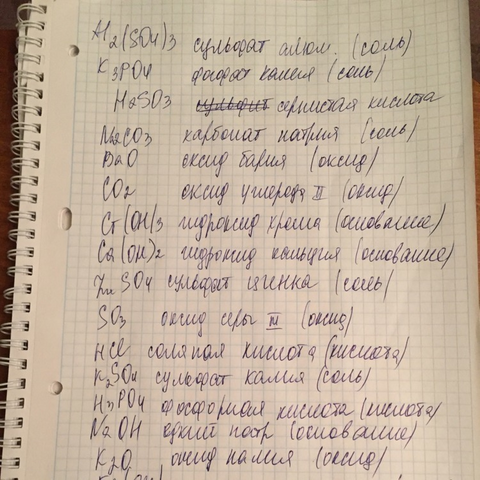 Al2(SO4)3 сульфат алюм. (соль)
K3PO4 фосфат калия (соль)
H2SO3 сульфит сернистая кислота
Na2CO3 карбонат натрия (соль)
BaO оксид бария (оксид)
CO2 оксид углерода II (оксид)
Cr(OH)3 гидроксид хрома (основание)
Ca(OH)2 гидроксид кальция (основание)
ZnSO4 сульфат цинка (соль)
SO3 оксид серы III (оксид)
HCl соляная кислота (кислота)
K2SO4 сульфат калия (соль)
H3PO4 фосфорная кислота (кислота)
NaOH едкий натр (основание)
K2O оксид калия (оксид)